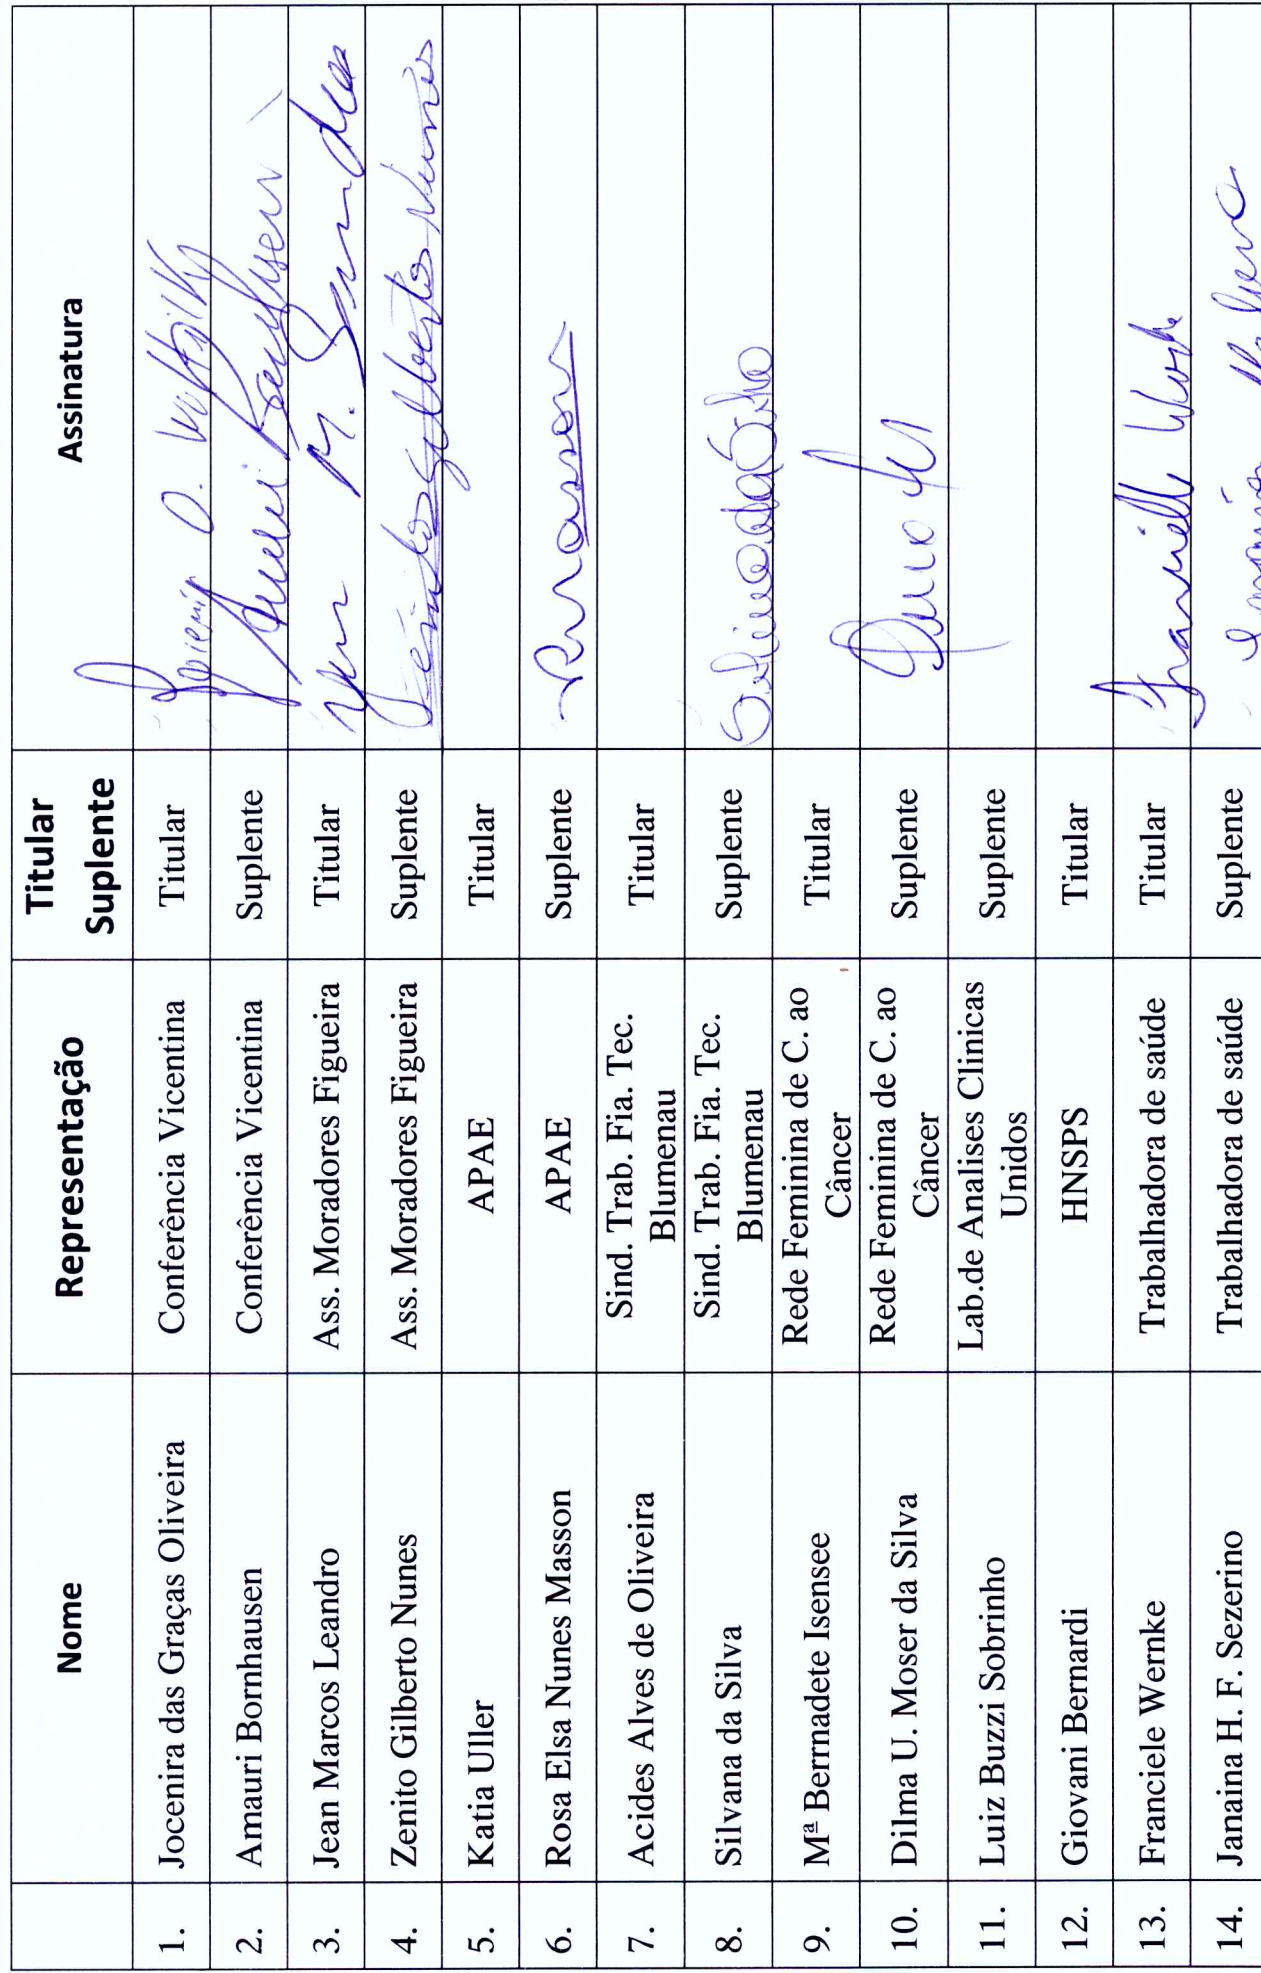 Nome Representação Titular Suplente Assinatura
1. Jocenira das Graças Oliveira Conferência Vicentina Titular
2. Amauri Bornhausen Conferência Vicentina Suplente
3. Jean Marcos Leandro Ass. Moradores Figueira Titular
4. Zenito Gilberto Nunes Ass. Moradores Figueira Suplente Zenito Gilberto Nunes
5. Katia Uller APAE Titular
6. Rosa Elsa Nunes Masson APAE Suplente
7. Acides Alves de Oliveira Sind. Trab. Fia. Tec. Blumenau Titular
8. Silvana da Silva Sind. Trab. Fia. Tec. Blumenau Suplente Silvana da Silva
9. Mª Berrnadete Isensee Rede Feminina de C. ao Câncer Titular
10. Dilma U. Moser da Silva Rede Feminina de C. ao Câncer Suplente
11. Luiz Buzzi Sobrinho Lab.de Analises Clinicas Unidos Suplente
12. Giovani Bernardi HNSPS Titular
13. Franciele Wernke Trabalhadora de saúde Titular
14. Janaina H. F. Sezerino Trabalhadora de saúde Suplente